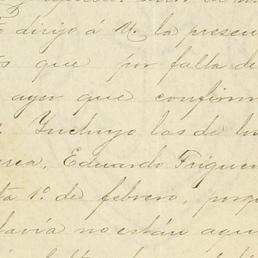 dirijo á V. la presen
que por falta de
ayer que confirm
Incluyo las de los
rea, Eduardo Friguer
ta 1º. de febrero, porq
davía no están aqu